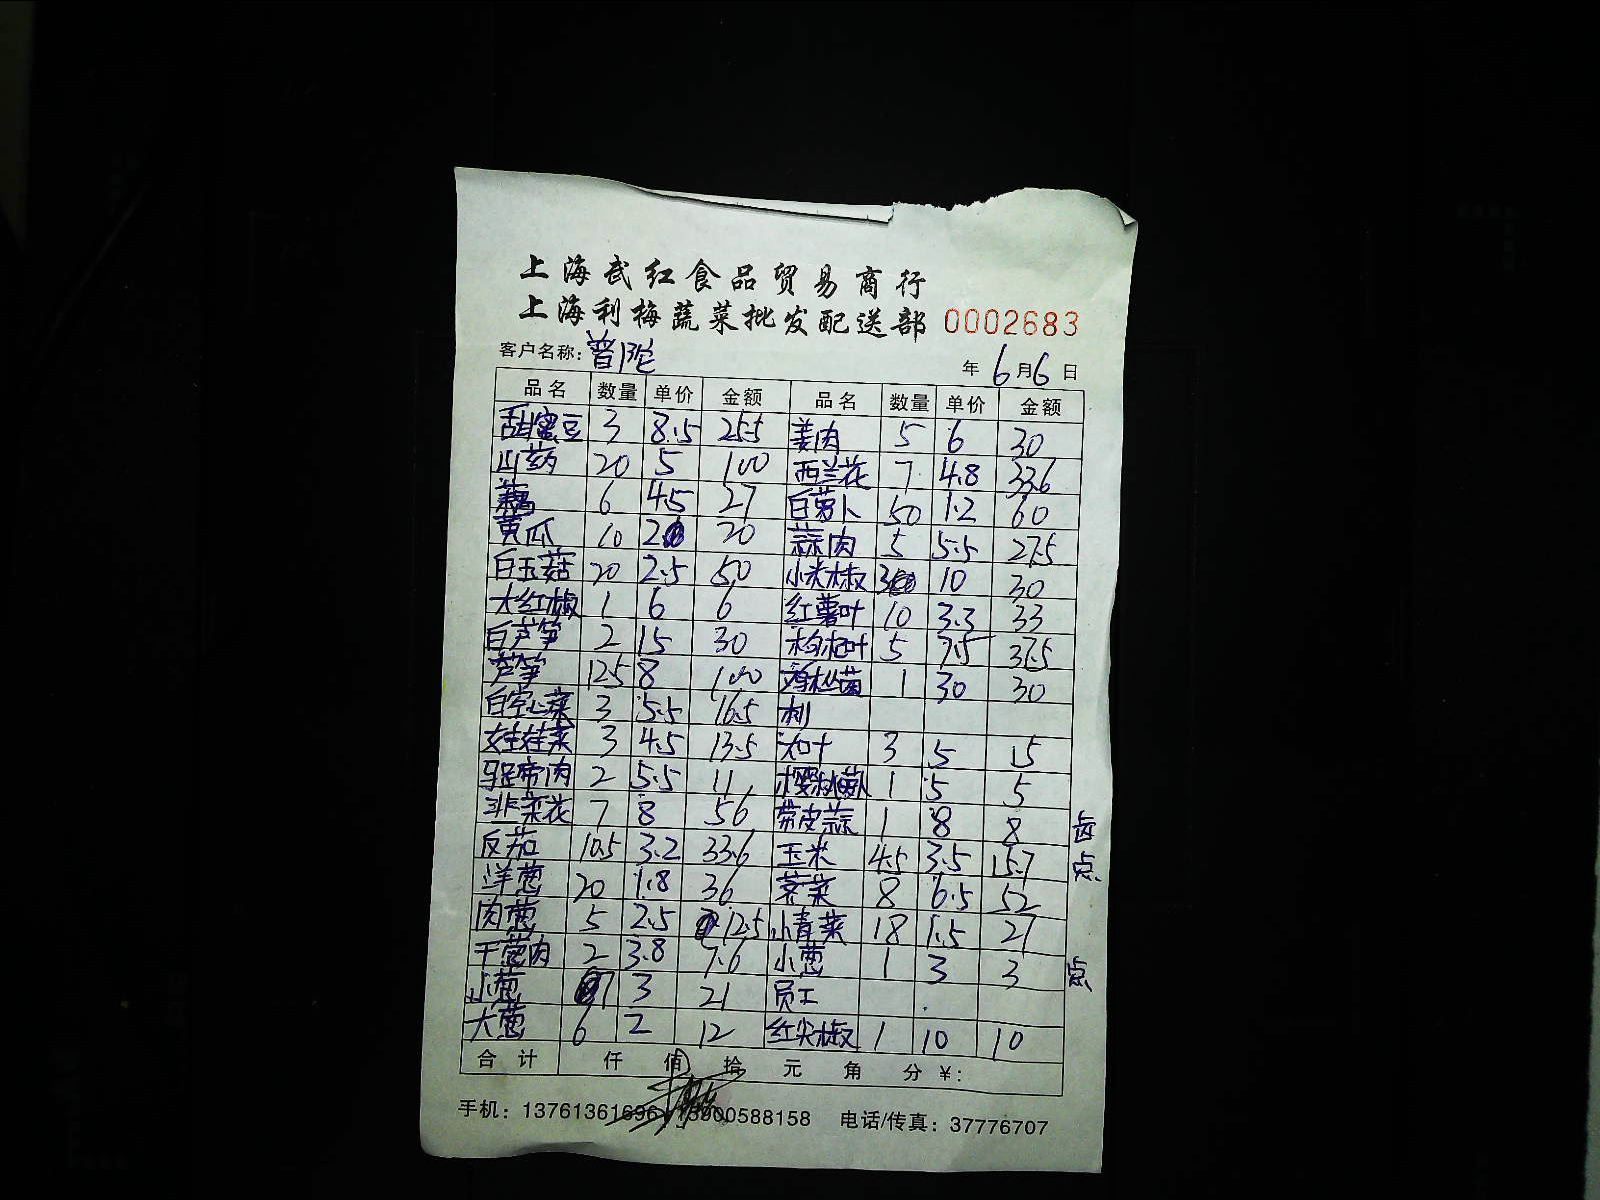 上海武红食品贸易商行
上海利梅蔬菜批发配送部 0002683
客户名称：普陀 年 6 月 6 日
品名 数量 单价 金额 品名 数量 单价 金额
甜蜜豆 3 8.5 25.5 姜肉 5 6 30
山药 20 5 100 西兰花 7 4.8 33.6
藕 6 4.5 27 白萝卜 50 1.2 60
黄瓜 10 2 20 蒜肉 5 5.5 27.5
白玉菇 20 2.5 50 小米椒 3 10 30
大红椒 1 6 6 红薯叶 10 3.3 33
白芦笋 2 15 30 枸杞叶 5 7.5 37.5
芦笋 12.5 8 100 鸡枞菌 1 30 30
白空心菜 3 5.5 16.5
娃娃菜 3 4.5 13.5 3 5 15
2 5.5 11 樱桃萝卜 1 5 5
韭菜花 7 8 56 带皮蒜 1 8 8 卤
反茄 10.5 3.2 33.6 玉米 4.5 3.5 15.7 点
洋葱 20 1.8 36 荠菜 8 6.5 52
肉葱 5 2.5 12.5 小青菜 18 1.5 27
干葱肉 2 3.8 7.6 小葱 1 3 3 点
小葱 7 3 21 员工
大葱 6 2 12 红尖椒 1 10 10
合计 仟 佰 拾 元 角 分 ¥：
手机：13761361696 13900588158 电话/传真：37776707